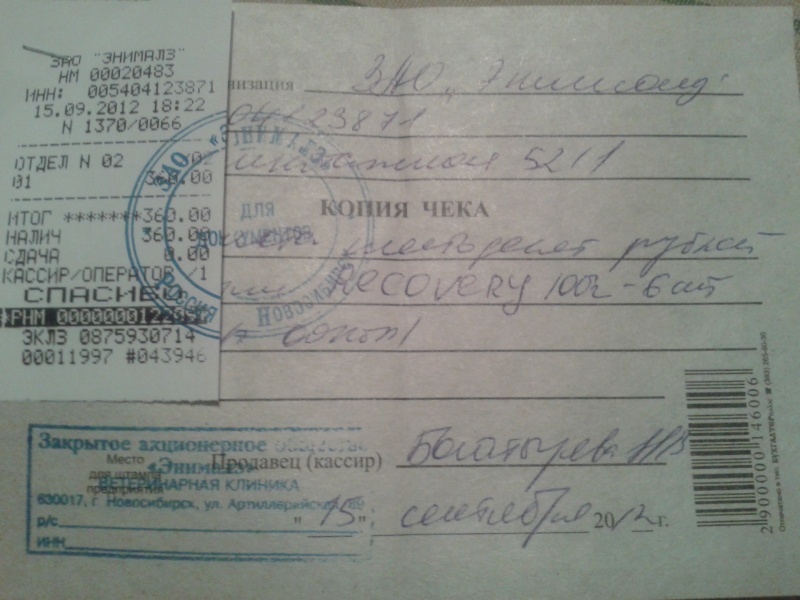 ЗАО "ЭНИМАЛЗ"
НМ 00020483
ИНН: 005404123871
15.09.2012 18:22
N 1370/0066
ОТДЕЛ N 02
01 360.00
ИТОГ *******360.00
НАЛИЧ 360.00
СДАЧА 0.00
КАССИР/ОПЕРАТОР /1
СПАСИБО
ЭКЛЗ 0875930714
00011997 #043946
низация ЗАО „Энималз"
04123871
5211
КОПИЯ ЧЕКА
шестьдесят рублей
RECOVERY 100г - 6 шт
ЗАО «ЭНИМАЛЗ»
ДЛЯ
ДОКУМЕНТОВ
РОССИЯ НОВОСИБИРСК
Закрытое акционерное общество
«Энималз»
ВЕТЕРИНАРНАЯ КЛИНИКА
630017, г. Новосибирск, ул. Артиллерийская
р/с
ИНН
Место
для штампа
предприятия
Продавец (кассир) Богатырева
" 15 " сентября 2012 г.
2 900000 146006